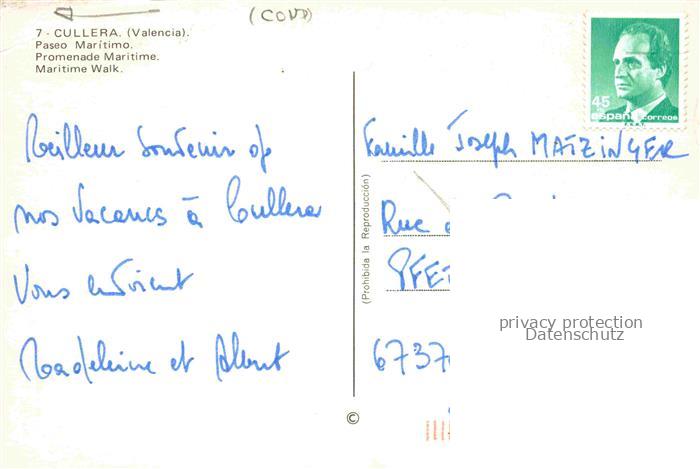 (COVD)
7 - CULLERA. (Valencia).
Paseo Marítimo.
Promenade Maritime.
Maritime Walk.
45
españa correos
Meilleur Souvenir de
nos Vacances à Cullera
Vous envoient
Madeleine et Albert
(Prohibida la Reproducción)
©
Famille Joseph MATZINGER
Rue
PFET
6737
privacy protection
Datenschutz